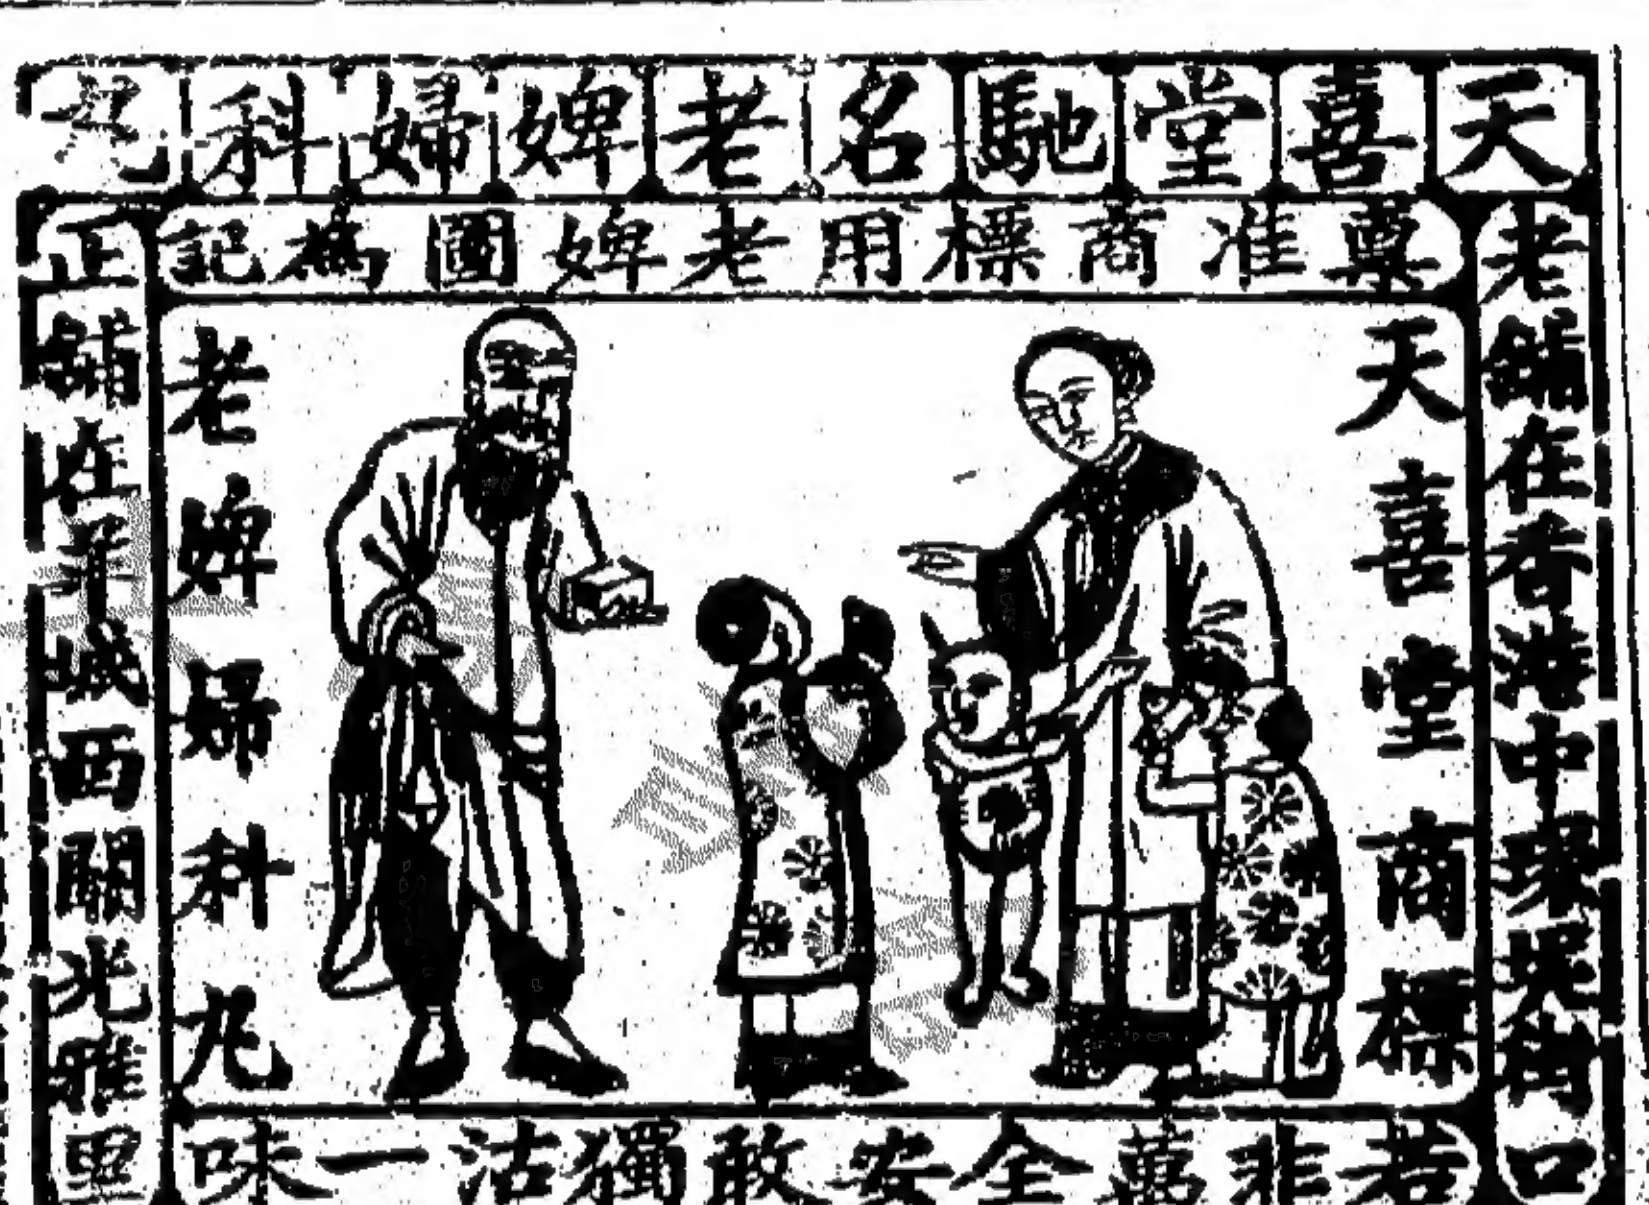 天喜堂馳名老婢婦科丸
尊准商標用老婢圖為記
老舖在香港中環吳街口
天喜堂商標
老婢婦科丸
正舖在羊城西關光雅里
若非萬全安敢獨沽一味